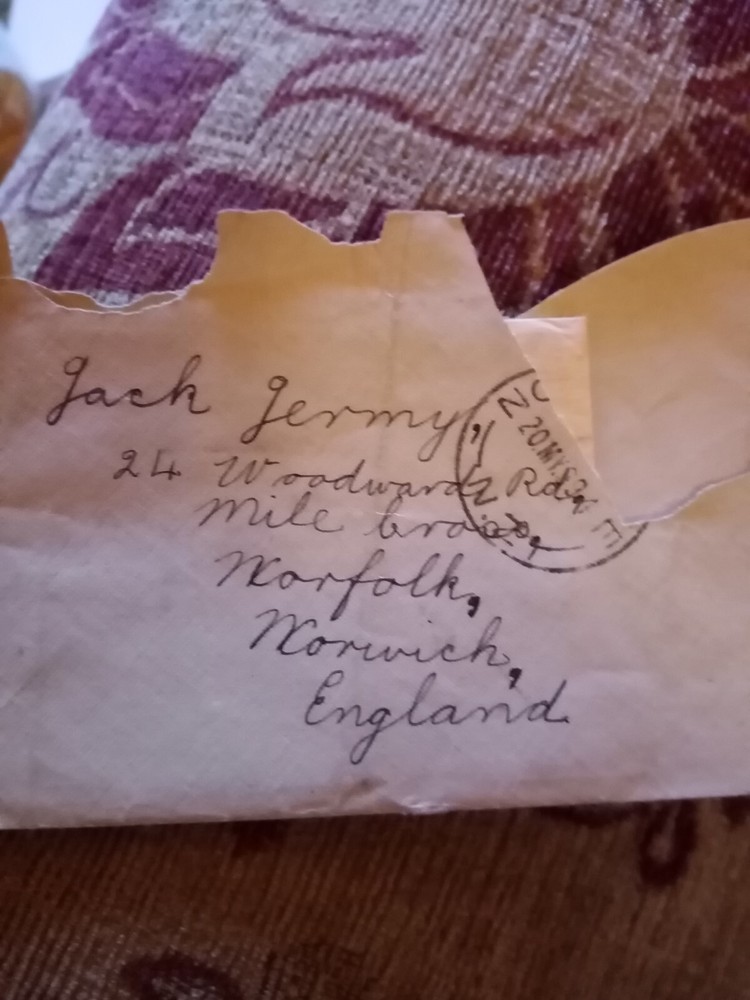 Jack Germy,
24 Woodward Rd,
Mile Cross,
Norfolk,
Norwich,
England.